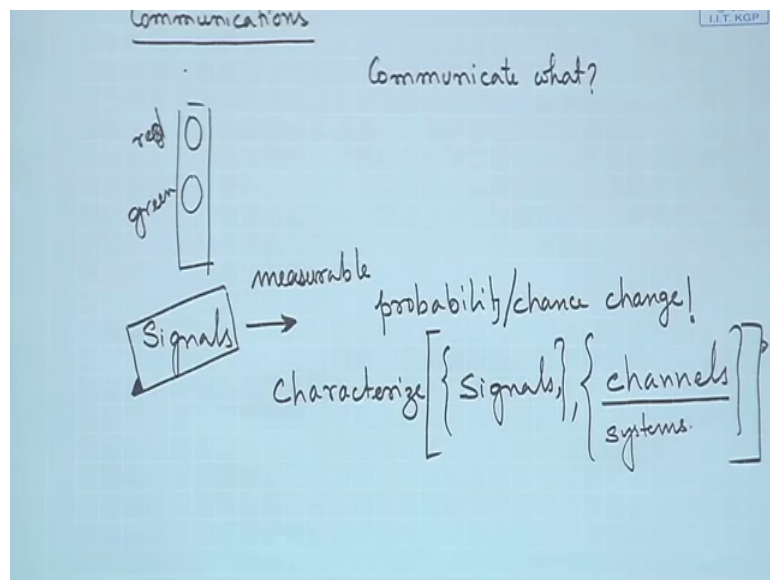 Communications
I.I.T. KGP
Communicate what?
red
green
measurable
Signals →
probability/chance change!
Characterize [{Signals,},{channels
systems.}]